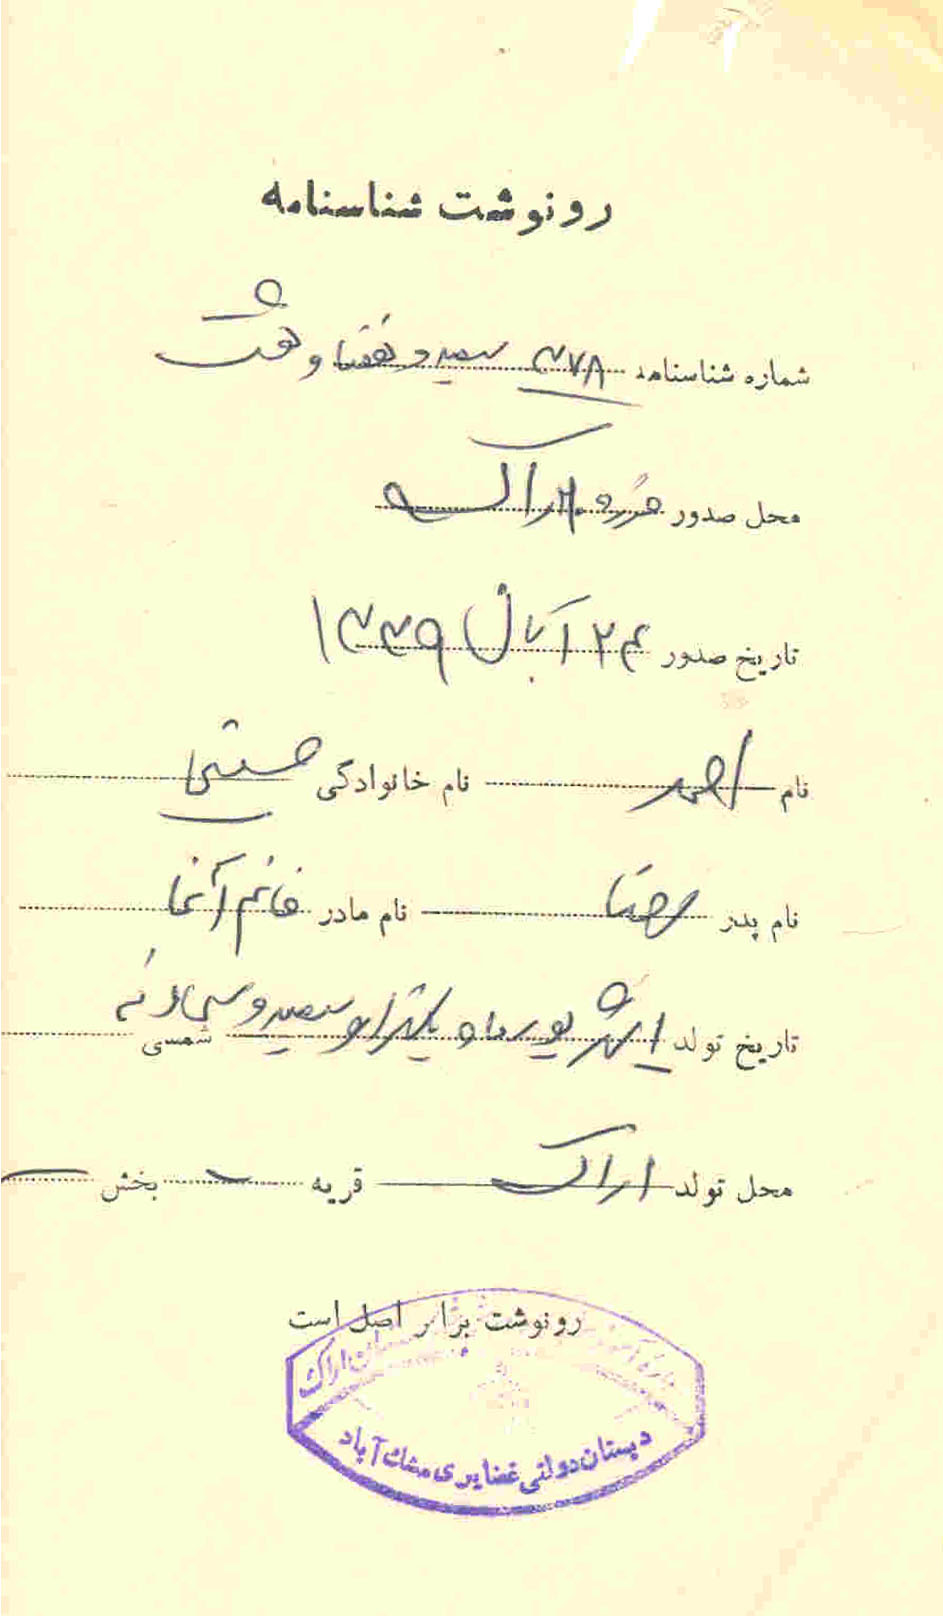 رونوشت شناسنامه
شماره شناسنامه ۳۷۸ سیصد و هفتاد و هشت
محل صدور حوزه ۲۰ اراک
تاریخ صدور ۲۴ آبان ۱۳۳۹
نام احمد نام خانوادگی
نام پدر رضا نام مادر خانم آغا
تاریخ تولد شهریور ماه یکهزار و سیصد و سی شمسی
محل تولد اراک قریه بخش
رونوشت برابر اصل است
اراک
دبستان دولتی غضایری مشک آباد